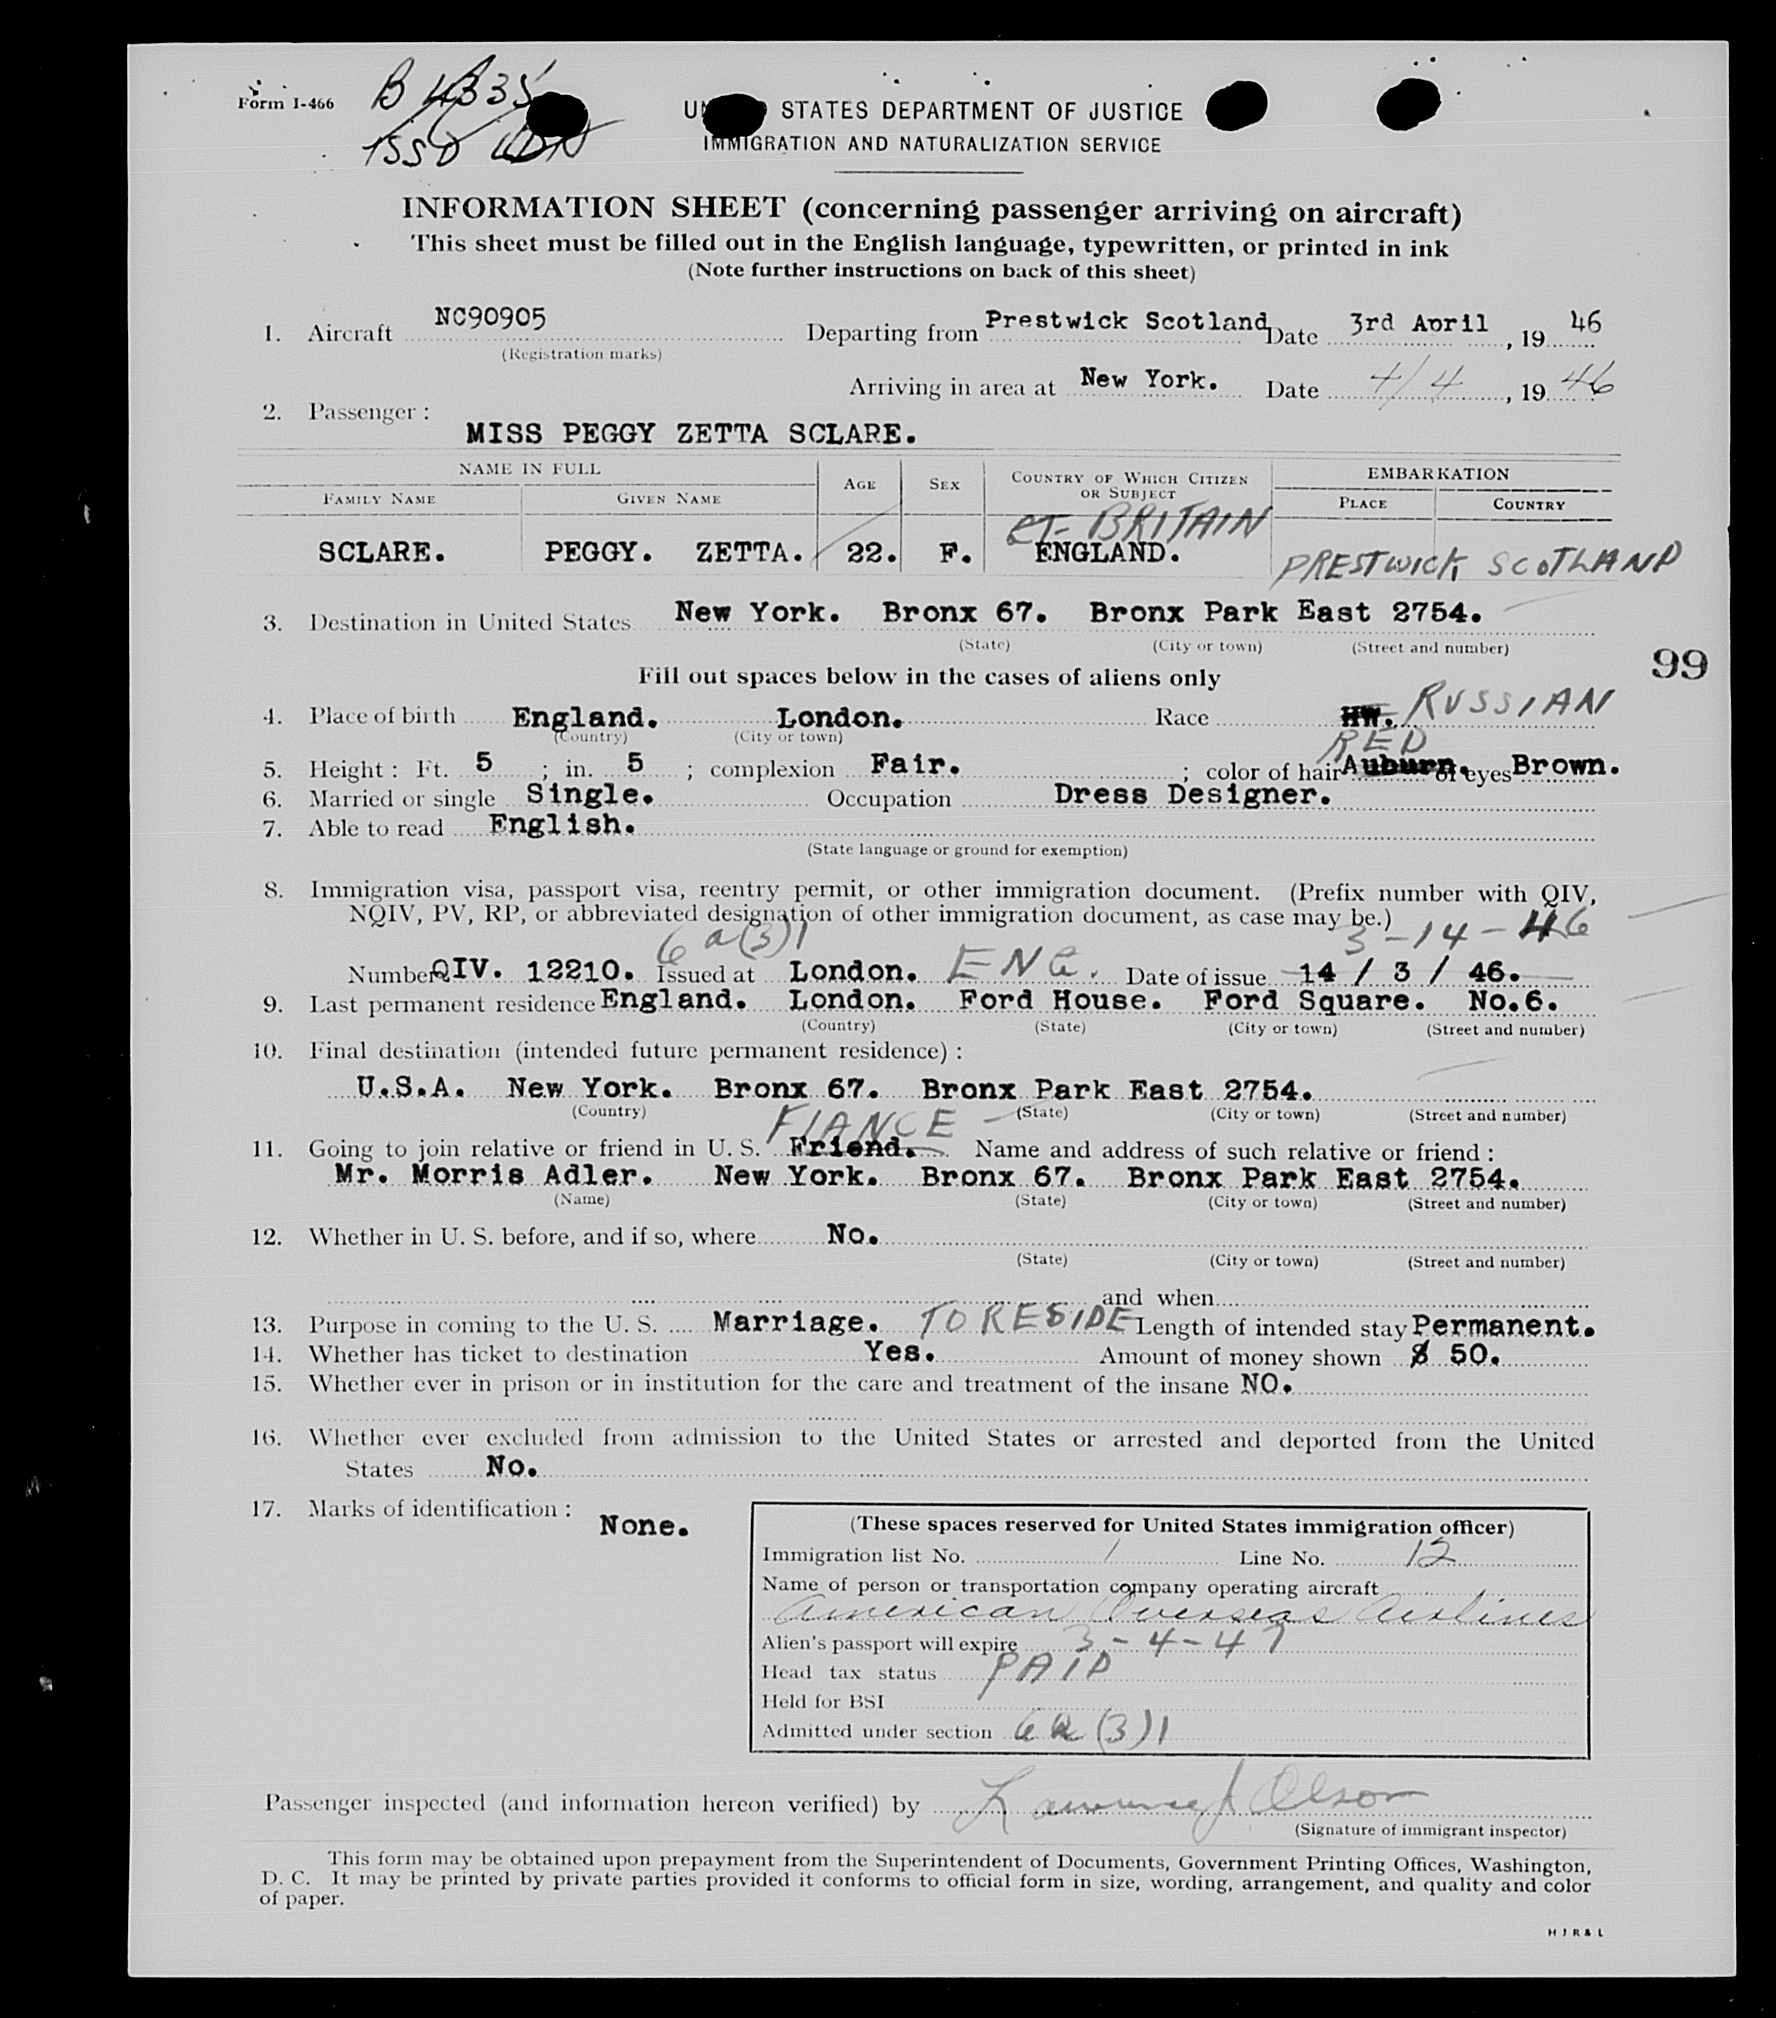 Form I-466
B 4335
1550
STATES DEPARTMENT OF JUSTICE
IMMIGRATION AND NATURALIZATION SERVICE
INFORMATION SHEET (concerning passenger arriving on aircraft)
This sheet must be filled out in the English language, typewritten, or printed in ink
(Note further instructions on back of this sheet)
1. Aircraft NC90905 Departing from Prestwick Scotland Date 3rd April, 19 46
(Registration marks)
Arriving in area at New York. Date 4/4, 19 46
2. Passenger :
MISS PEGGY ZETTA SCLARE.
NAME IN FULL AGE SEX COUNTRY OF WHICH CITIZEN OR SUBJECT EMBARKATION
FAMILY NAME GIVEN NAME PLACE COUNTRY
GT BRITAIN
SCLARE. PEGGY. ZETTA. 22. F. ENGLAND. PRESTWICK SCOTLAND
3. Destination in United States New York. Bronx 67. Bronx Park East 2754.
(State) (City or town) (Street and number)
99
Fill out spaces below in the cases of aliens only
4. Place of birth England. London. Race HW. RUSSIAN
(Country) (City or town)
RED
5. Height : Ft. 5 ; in. 5 ; complexion Fair. ; color of hair Auburn. of eyes Brown.
6. Married or single Single. Occupation Dress Designer.
7. Able to read English.
(State language or ground for exemption)
8. Immigration visa, passport visa, reentry permit, or other immigration document. (Prefix number with QIV,
NQIV, PV, RP, or abbreviated designation of other immigration document, as case may be.)
6a(3)1 3-14-46
Number QIV. 12210. Issued at London. ENG. Date of issue 14 / 3 / 46.
9. Last permanent residence England. London. Ford House. Ford Square. No.6.
(Country) (State) (City or town) (Street and number)
10. Final destination (intended future permanent residence) :
U.S.A. New York. Bronx 67. Bronx Park East 2754.
(Country) (State) (City or town) (Street and number)
FIANCE
11. Going to join relative or friend in U. S. Friend. Name and address of such relative or friend :
Mr. Morris Adler. New York. Bronx 67. Bronx Park East 2754.
(Name) (State) (City or town) (Street and number)
12. Whether in U. S. before, and if so, where No.
(State) (City or town) (Street and number)
and when
13. Purpose in coming to the U. S. Marriage. TO RESIDE Length of intended stay Permanent.
14. Whether has ticket to destination Yes. Amount of money shown $ 50.
15. Whether ever in prison or in institution for the care and treatment of the insane NO.
16. Whether ever excluded from admission to the United States or arrested and deported from the United
States No.
17. Marks of identification :
None.
(These spaces reserved for United States immigration officer)
Immigration list No. 1 Line No. 12
Name of person or transportation company operating aircraft
American Overseas Airlines
Alien's passport will expire 3-4-47
Head tax status PAID
Held for BSI
Admitted under section 6a(3)1
Passenger inspected (and information hereon verified) by Olson
(Signature of immigrant inspector)
This form may be obtained upon prepayment from the Superintendent of Documents, Government Printing Offices, Washington,
D. C. It may be printed by private parties provided it conforms to official form in size, wording, arrangement, and quality and color
of paper.
H J R & L